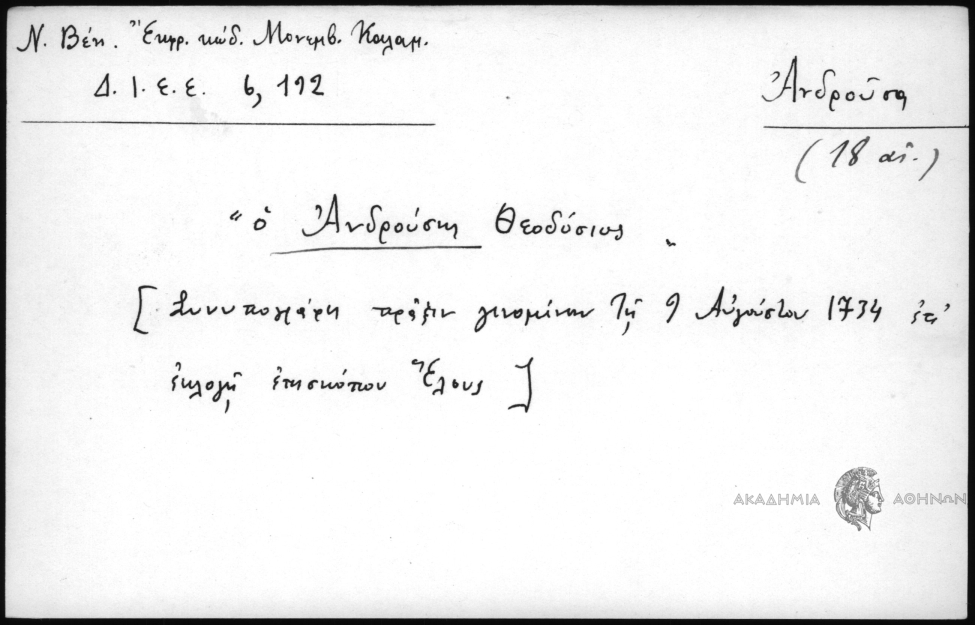 Ν. Βέη. Ἔκφρ. κώδ. Μονεμβ. Καλαμ.
Δ. Ι. Ε. Ε. 6, 192
Ἀνδροῦσα
(18 αἰ.)
"ὁ Ἀνδρούσης Θεοδόσιος"
[Συνυπογράφει πρᾶξιν γενομένην τῇ 9 Αὐγούστου 1734 ἐπ'
ἐκλογῇ ἐπισκόπου Ἕλους]
ΑΚΑΔΗΜΙΑ ΑΘΗΝΩΝ